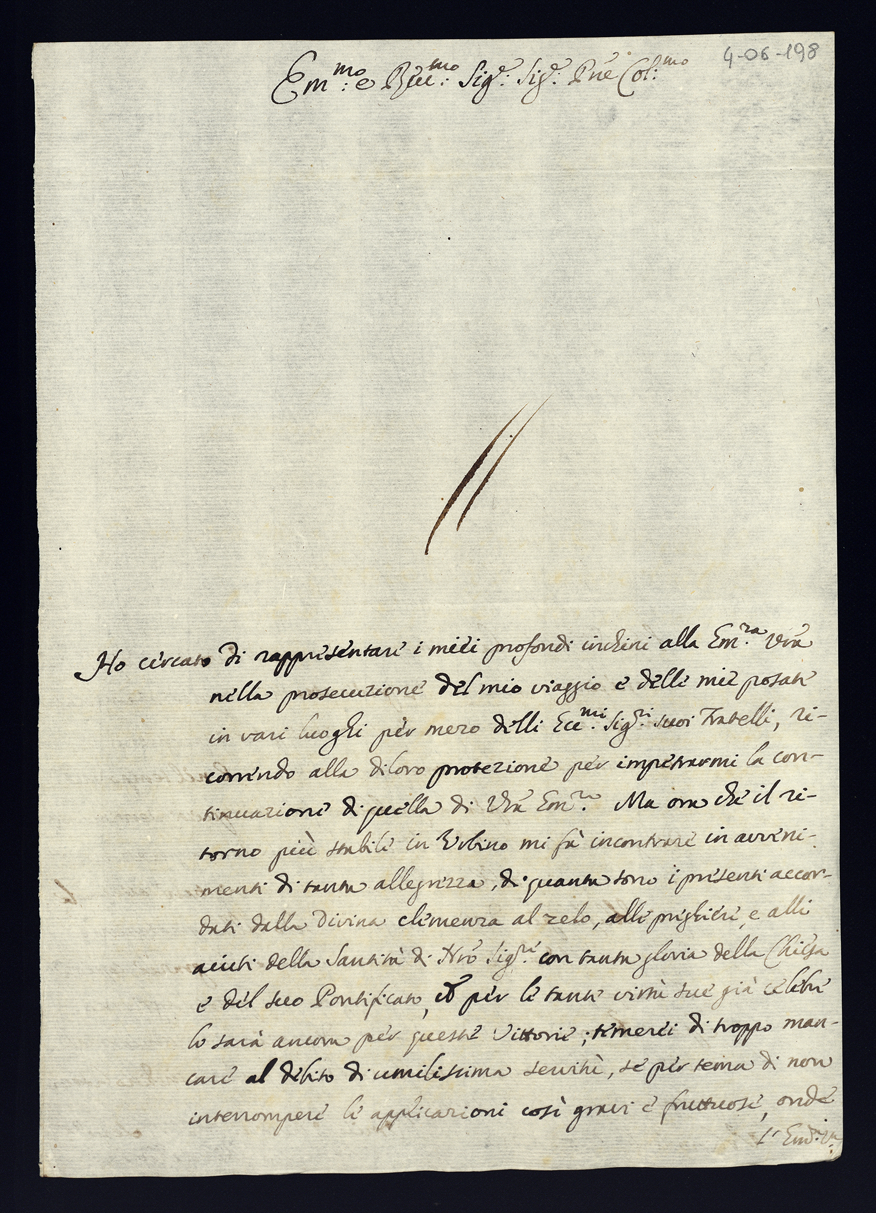 4-06-198
Em.mo e Rev.mo Sig.e Sig.e Pne Col.mo
Ho cercato di rappresentare i miei profondi inchini alla Em.ra Vra
nella prosecuzione del mio viaggio e delle mie posate
in vari luoghi per mezo delli Ecc.mi Sig.ri suoi Fratelli, ri-
correndo alla di loro protezione per impetrarmi la con-
tinuazione di quella di Vra Em.ra Ma ora che il ri-
torno più stabile in Urbino mi fà incontrare in avveni-
menti di tanta allegrezza, di quanta sono i presenti accor-
dati dalla Divina clemenza al zelo, alle preghiere, e alli
aiuti della Santità di Nro Sig.re con tanta gloria della Chiesa
e del suo Pontificato, che per le tante virtù sue già celebre
lo sarà ancora per queste Vittorie; temerei di troppo man-
care al debito di umilissima servitù, se per tema di non
interrompere le applicazioni così gravi e fruttuose, onde
l'Em.